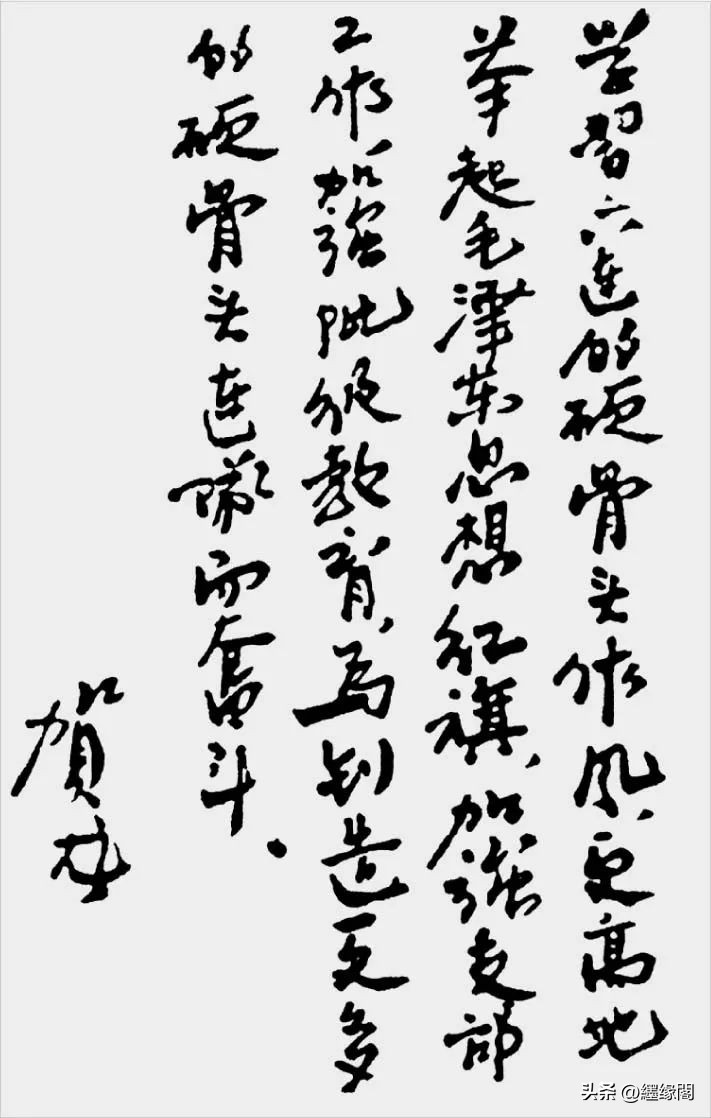 学習六连的硬骨头作风,更高地
举起毛澤东思想红旗,加强支部
工作,加强阶级教育,为创造更多
的硬骨头连隊而奮斗。
賀龙
头条